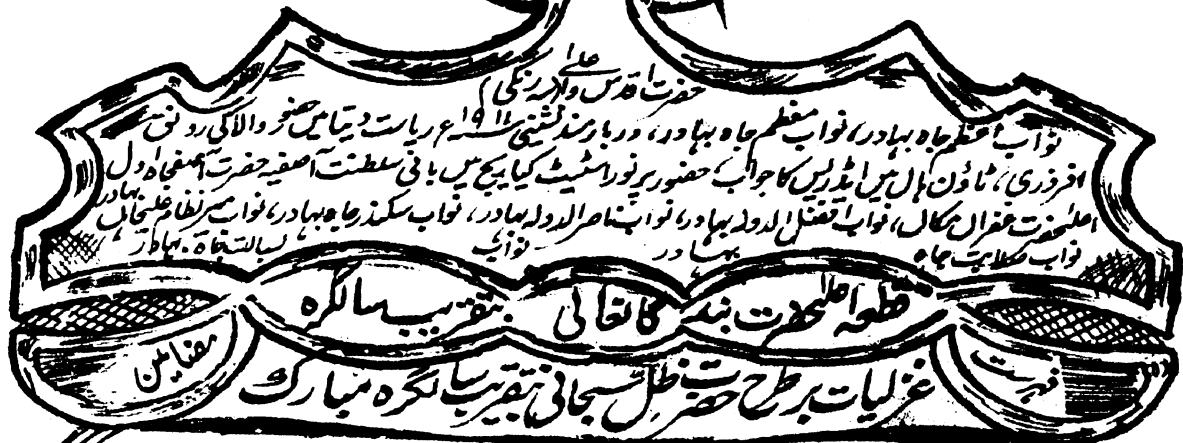 حضرت اقدس واعلےٰ (رنگی)
نواب اعظم جاہ بہادر، نواب معظم جاہ بہادر، دربار مسند نشینی ۱۹۱۱ء ریاست دیتیا میں حضور والا کی رونق
افروزی، ٹاؤن ہال میں ایڈریس کا جواب، حضور پرنور اسٹیٹ کیاریج میں بانی سلطنت آصفیہ حضرت آصفجاہ اول
اعلیٰحضرت غفراں مکاں، نواب افضل الدولہ بہادر، نواب ناصر الدولہ بہادر، نواب سکندر جاہ بہادر، نواب میر نظام علیخاں بہادر
نواب صلابت جاہ بہادر نواب بسالت جاہ بہادر
قطعہ اعلٰحضرت بندگانعالی بتقریب سالگرہ
فہرست غزلیات برطرح حضرت ظل سبحانی بتقریب سالگرہ مبارک مضامین